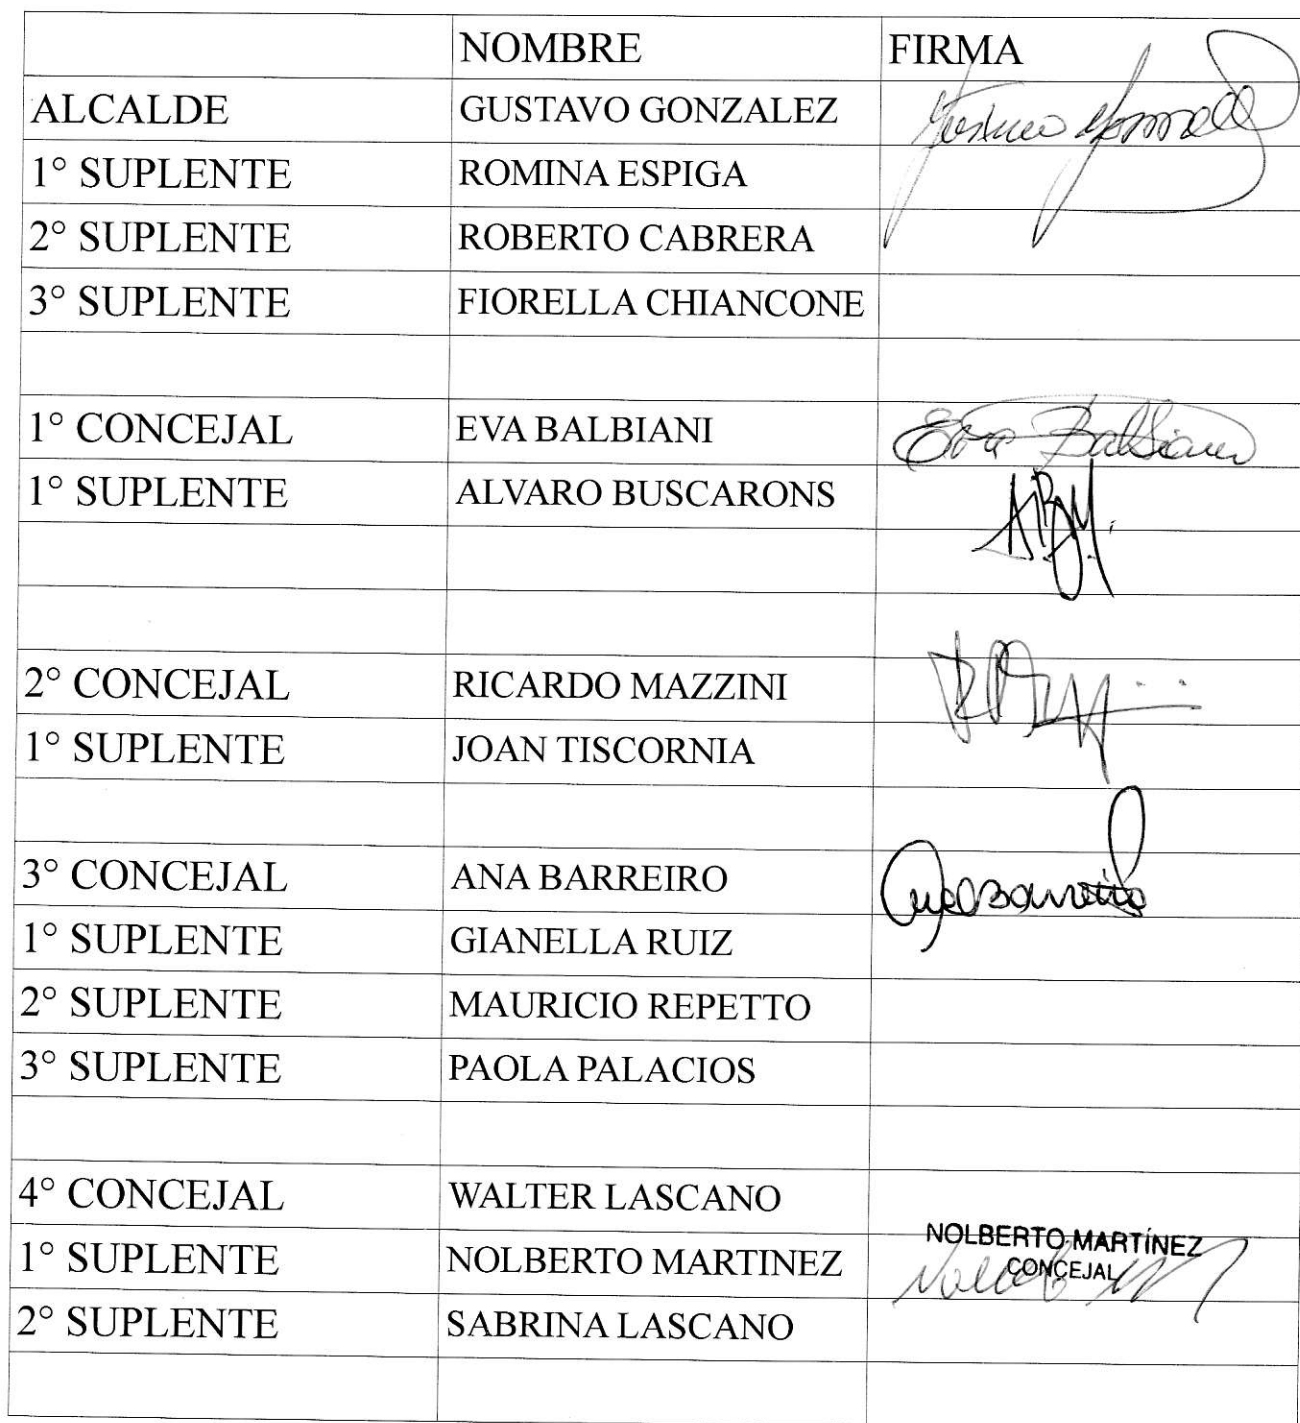 NOMBRE FIRMA
ALCALDE GUSTAVO GONZALEZ Gustavo Gonzalez
1° SUPLENTE ROMINA ESPIGA
2° SUPLENTE ROBERTO CABRERA
3° SUPLENTE FIORELLA CHIANCONE
1° CONCEJAL EVA BALBIANI Eva Balbiani
1° SUPLENTE ALVARO BUSCARONS
2° CONCEJAL RICARDO MAZZINI
1° SUPLENTE JOAN TISCORNIA
3° CONCEJAL ANA BARREIRO
1° SUPLENTE GIANELLA RUIZ
2° SUPLENTE MAURICIO REPETTO
3° SUPLENTE PAOLA PALACIOS
4° CONCEJAL WALTER LASCANO
1° SUPLENTE NOLBERTO MARTINEZ NOLBERTO MARTÍNEZ
CONCEJAL
2° SUPLENTE SABRINA LASCANO